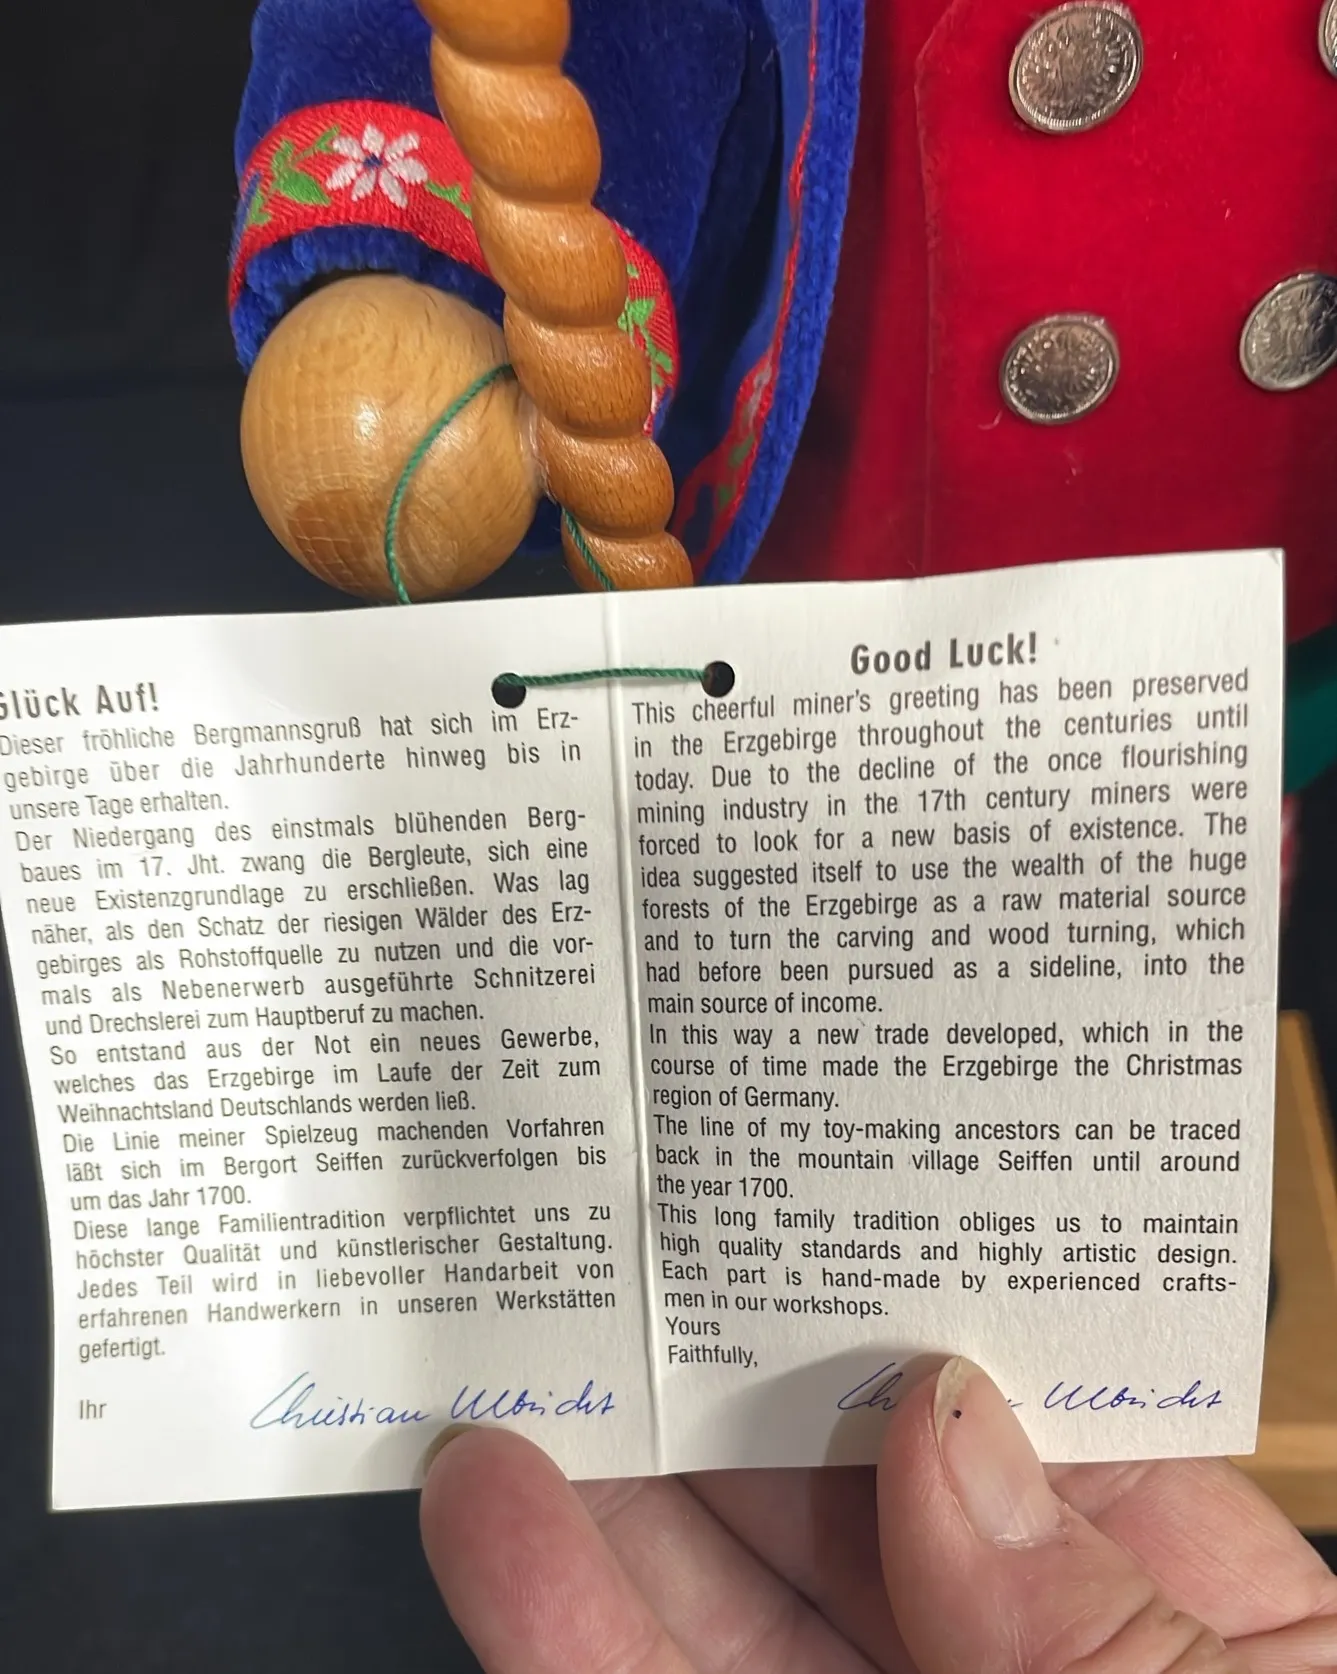 Glück Auf!
Dieser fröhliche Bergmannsgruß hat sich im Erz-
gebirge über die Jahrhunderte hinweg bis in
unsere Tage erhalten.
Der Niedergang des einstmals blühenden Berg-
baues im 17. Jht. zwang die Bergleute, sich eine
neue Existenzgrundlage zu erschließen. Was lag
näher, als den Schatz der riesigen Wälder des Erz-
gebirges als Rohstoffquelle zu nutzen und die vor-
mals als Nebenerwerb ausgeführte Schnitzerei
und Drechslerei zum Hauptberuf zu machen.
So entstand aus der Not ein neues Gewerbe,
welches das Erzgebirge im Laufe der Zeit zum
Weihnachtsland Deutschlands werden ließ.
Die Linie meiner Spielzeug machenden Vorfahren
läßt sich im Bergort Seiffen zurückverfolgen bis
um das Jahr 1700.
Diese lange Familientradition verpflichtet uns zu
höchster Qualität und künstlerischer Gestaltung.
Jedes Teil wird in liebevoller Handarbeit von
erfahrenen Handwerkern in unseren Werkstätten
gefertigt.
Ihr Christian Ulbricht
Good Luck!
This cheerful miner's greeting has been preserved
in the Erzgebirge throughout the centuries until
today. Due to the decline of the once flourishing
mining industry in the 17th century miners were
forced to look for a new basis of existence. The
idea suggested itself to use the wealth of the huge
forests of the Erzgebirge as a raw material source
and to turn the carving and wood turning, which
had before been pursued as a sideline, into the
main source of income.
In this way a new trade developed, which in the
course of time made the Erzgebirge the Christmas
region of Germany.
The line of my toy-making ancestors can be traced
back in the mountain village Seiffen until around
the year 1700.
This long family tradition obliges us to maintain
high quality standards and highly artistic design.
Each part is hand-made by experienced crafts-
men in our workshops.
Yours
Faithfully,
Ch Ulbricht